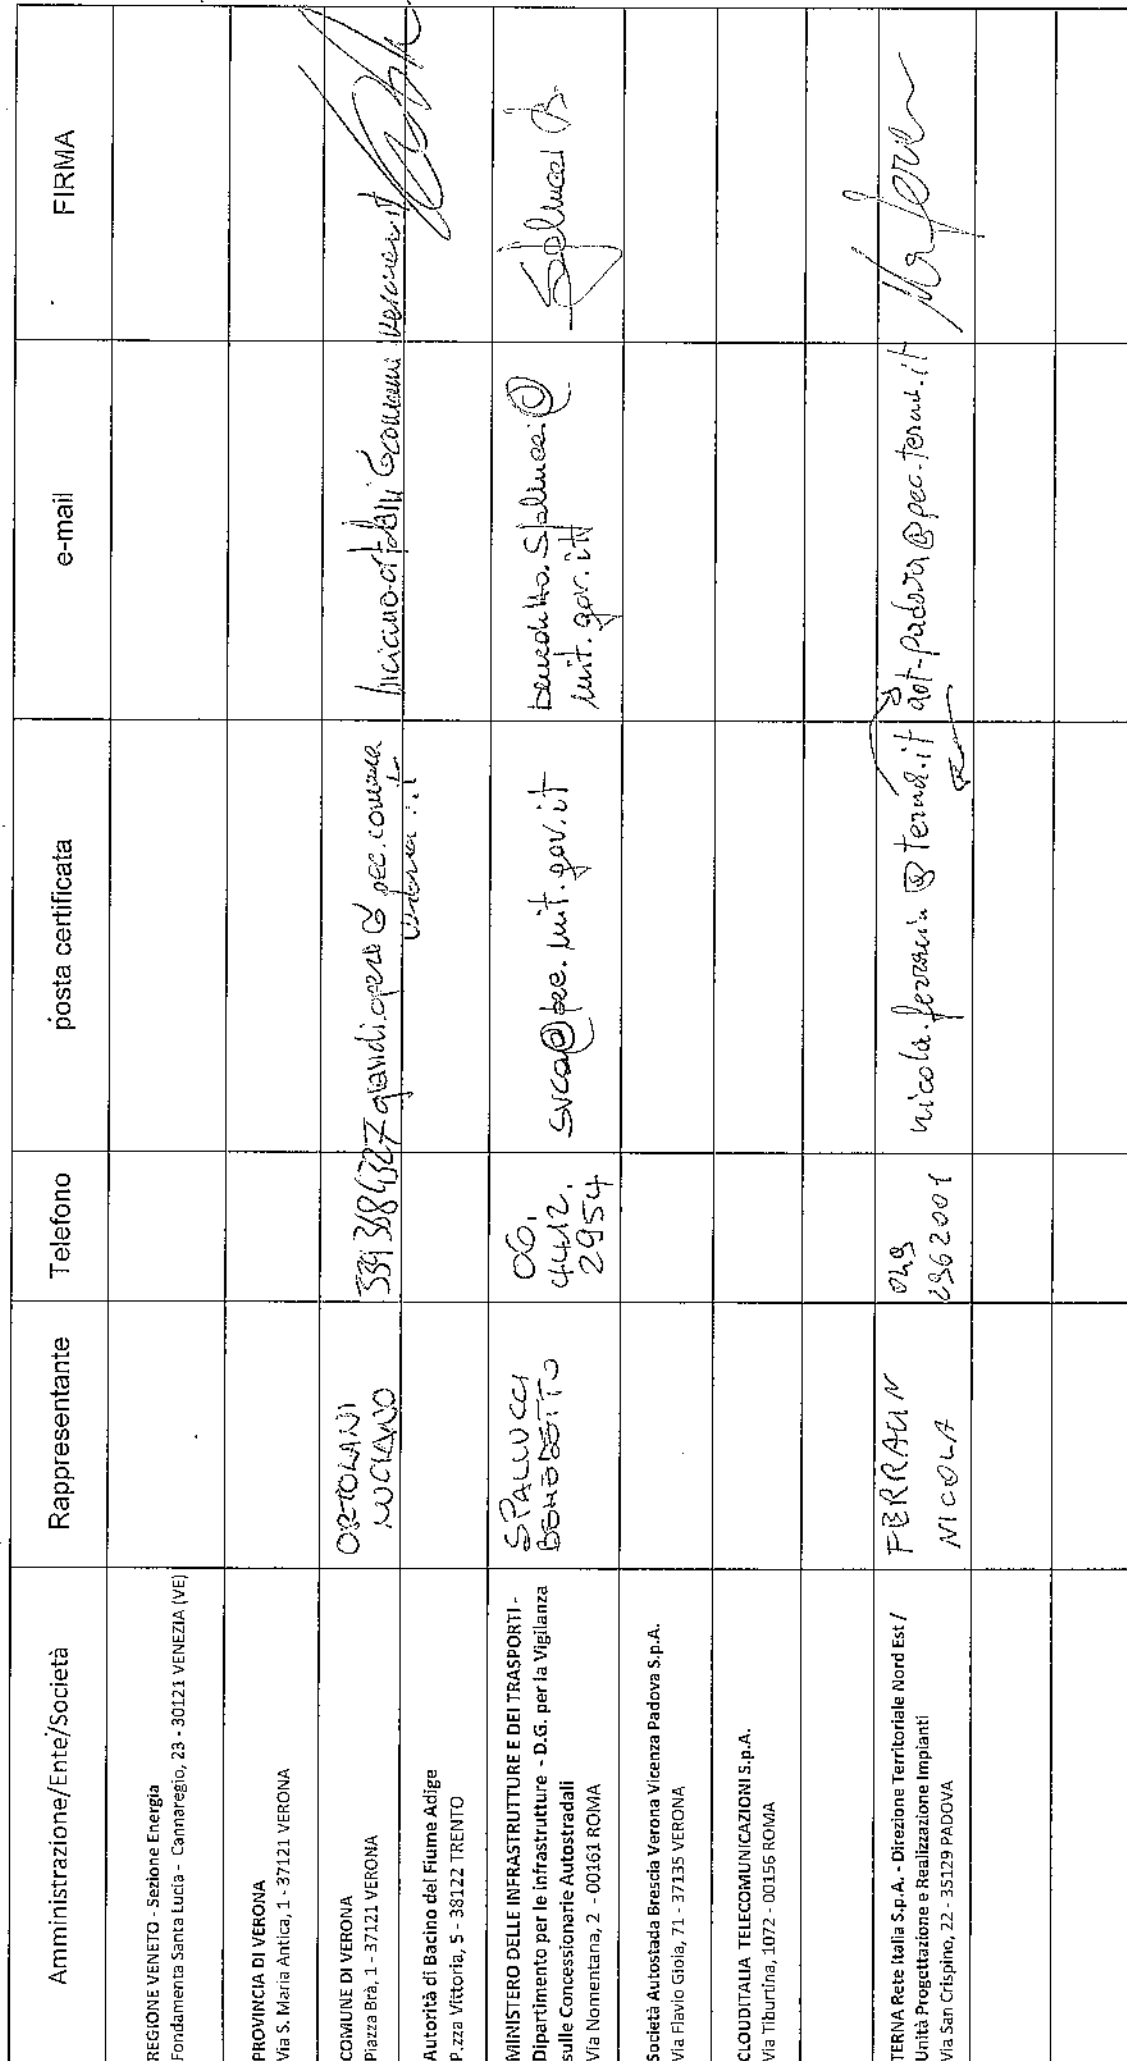 Amministrazione/Ente/Società Rappresentante Telefono posta certificata e-mail FIRMA
REGIONE VENETO - Sezione Energia
Fondamenta Santa Lucia - Cannaregio, 23 - 30121 VENEZIA (VE)
PROVINCIA DI VERONA
Via S. Maria Antica, 1 - 37121 VERONA
COMUNE DI VERONA
Piazza Brà, 1 - 37121 VERONA
ORTOLANI
LUCIANO
grandi.opere@pec.comune
verona.it
luciano.ortolani@comune.verona.it
Autorità di Bacino del Fiume Adige
P.zza Vittoria, 5 - 38122 TRENTO
MINISTERO DELLE INFRASTRUTTURE E DEI TRASPORTI -
Dipartimento per le infrastrutture - D.G. per la Vigilanza
sulle Concessionarie Autostradali
Via Nomentana, 2 - 00161 ROMA
SPALLUCCI
BENEDETTO
06.
4412.
2954
svca@pec.mit.gov.it
benedetto.spallucci@
mit.gov.it
Spallucci B.
Società Autostada Brescia Verona Vicenza Padova S.p.A.
Via Flavio Gioia, 71 - 37135 VERONA
CLOUDITALIA TELECOMUNICAZIONI S.p.A.
Via Tiburtina, 1072 - 00156 ROMA
TERNA Rete Italia S.p.A. - Direzione Territoriale Nord Est /
Unità Progettazione e Realizzazione Impianti
Via San Crispino, 22 - 35129 PADOVA
FERRACIN
NICOLA
049
2962001
nicola.ferracin@terna.it
aot-padova@pec.terna.it